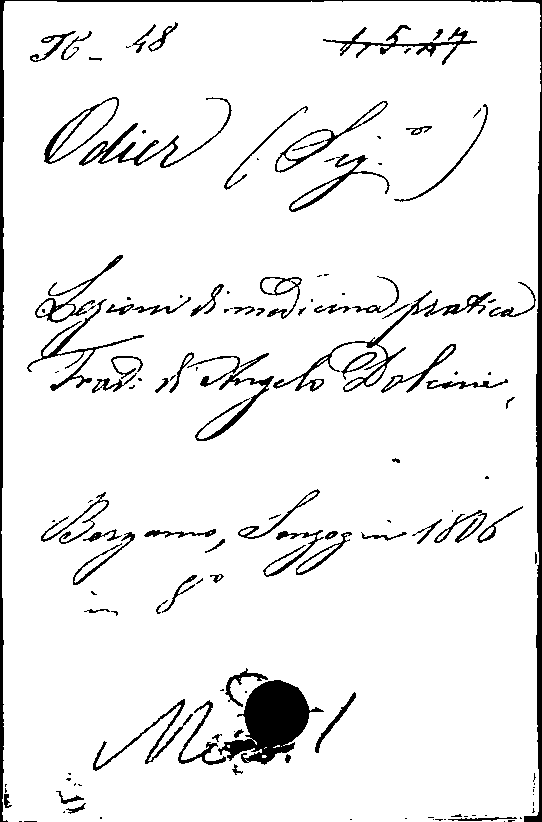 K - 48 1.5.27
Odier (Sig.ʳ)
Lezioni di medicina pratica
Trad. di Angelo Dolcini,
Bergamo, Sonzogni 1806
in 8°
1